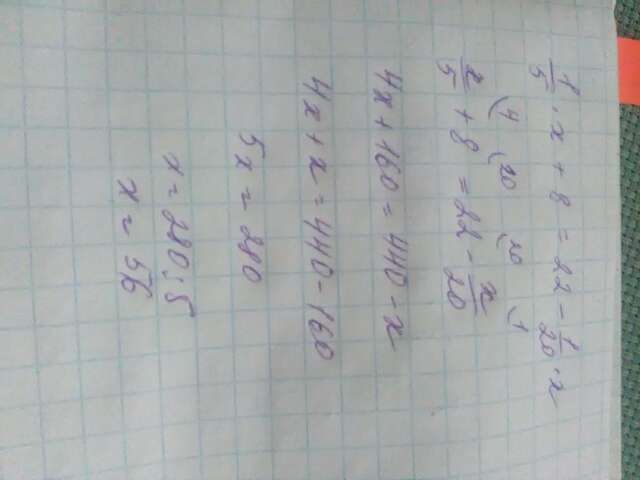 1/5 · x + 8 = 22 - 1/20 · x
(4 (20 (20 (1
x/5 + 8 = 22 - x/20
4x + 160 = 440 - x
4x + x = 440 - 160
5x = 280
x = 280 : 5
x = 56